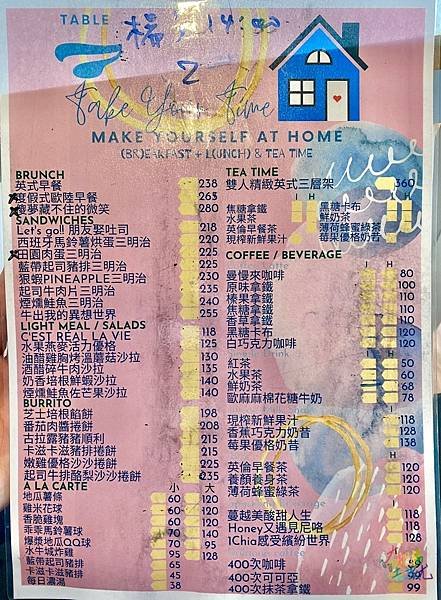 TABLE
楊 14:00
Take Your Time
MAKE YOURSELF AT HOME
(BR)EAKFAST + L(UNCH) & TEA TIME
BRUNCH
英式早餐 238
度假式歐陸早餐 263
薐夢藏不住的微笑 280
SANDWICHES
Let's go!! 朋友娶吐司 208
西班牙馬鈴薯烘蛋三明治 215
田園肉蛋三明治 215
藍帶起司豬排三明治 230
狠蝦PINEAPPLE三明治 230
起司牛肉片三明治 230
煙燻鮭魚三明治 240
牛出我的異想世界 255
LIGHT MEAL / SALADS
C'EST REAL LA VIE 118
水果燕麥活力優格 125
油醋雞胸烤溫蘑菇沙拉 130
酒醋碎牛肉沙拉 135
奶香培根鮮蝦沙拉 140
煙燻鮭魚佐芒果沙拉 140
BURRITO
芝士培根餡餅 198
番茄肉醬捲餅 208
古拉露豬豬順利 215
卡滋卡滋豬排捲餅 215
嫩雞優格沙沙捲餅 225
起司牛排酪梨沙沙捲餅 235
A LA CARTE 小 大
地瓜薯條 60 120
雞米花球 60 120
香脆雞塊 60 120
乖乖馬鈴薯球 70 138
爆漿地瓜QQ球 70 140
水牛城炸雞 95 128
藍帶起司豬排 65
卡滋卡滋豬排 45
每日濃湯 38
TEA TIME
雙人精緻英式三層架 360
I H I H
焦糖拿鐵 黑糖卡布
水果茶 鮮奶茶
英倫早餐茶 薄荷蜂蜜綠茶
現榨新鮮果汁 莓果優格奶昔
COFFEE / BEVERAGE
I H
曼慢來咖啡 80
原味拿鐵 100
榛果拿鐵 110
焦糖拿鐵 110
香草拿鐵 110
黑糖卡布 120
白巧克力咖啡 120
I H
紅茶 50
水果茶 60
鮮奶茶 68
歐麻麻棉花糖牛奶 78
現榨新鮮果汁 118
香蕉巧克力奶昔 128
莓果優格奶昔 138
英倫早餐茶 120
養顏養身茶 120
薄荷蜂蜜綠茶 120
蔓越美酸甜人生 118
Honey又遇見尼咯 118
1Chia感受繽紛世界 128
400次咖啡 89
400次可可亞 99
400次抹茶拿鐵 99